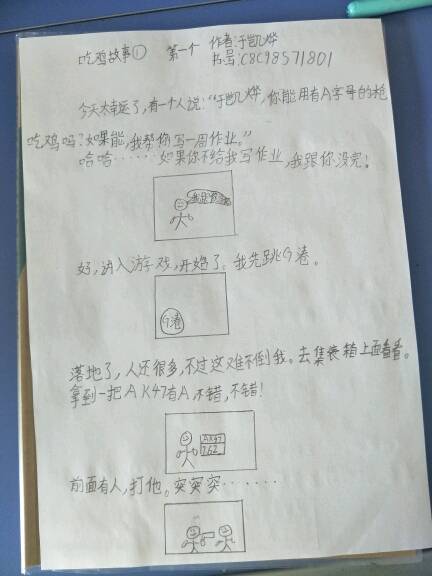 吃鸡故事① 第一个 作者:于凯烨
书号:C8C98571801
今天太幸运了,有一个人说:“于凯烨,你能用有A字母的枪
吃鸡吗?如果能,我帮你写一周作业。”
哈哈……如果你不给我写作业,我跟你没完!
好,进入游戏,开始了。我先跳G港。
G港
落地了,人还很多,不过这难不倒我。去集装箱上面看看。
拿到一把AK47有A,不错,不错!
AK47
7.62
前面有人,打他。突突突……